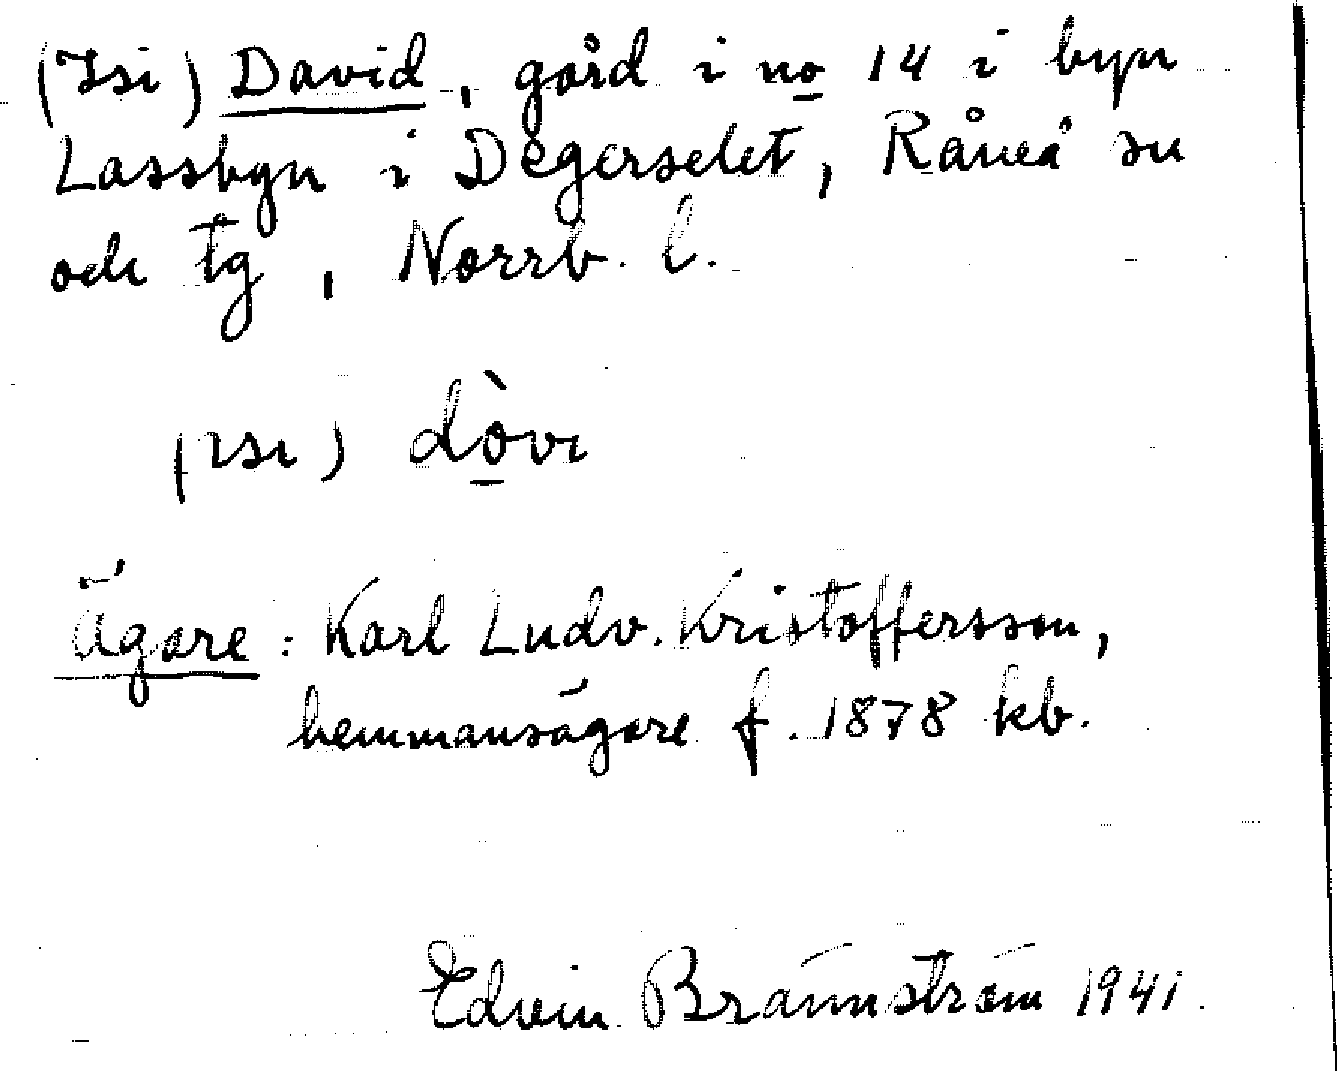 (Isi) David, gård i no 14 i byn
Lassbyn i Degerselet, Råneå sn
och tg, Norrb. l.
(ısı) dòvı
Ägare: Karl Ludv. Kristoffersson,
hemmansägare f. 1878 kb.
Edvin Brännström 1941.